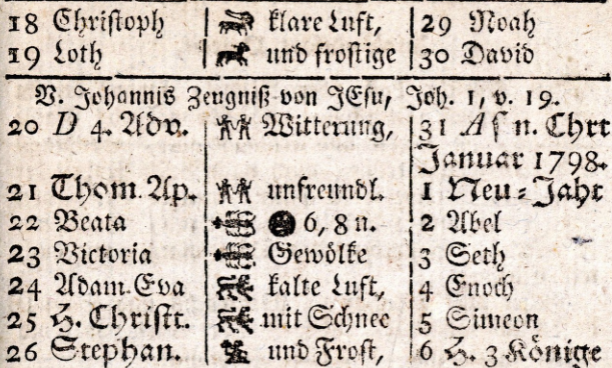 18 Christoph klare Luft, 29 Noah
19 Loth und frostige 30 David
V. Johannis Zeugniß von JEsu, Joh. 1, v. 19.
20 D 4. Adv. Witterung, 31 A s n. Chrt
Januar 1798.
21 Thom. Ap. unfreundl. 1 Neu-Jahr
22 Beata 6, 8 n. 2 Abel
23 Victoria Gewölke 3 Seth
24 Adam. Eva kalte Luft, 4 Enoch
25 H. Christt. mit Schnee 5 Simeon
26 Stephan. und Frost, 6 H. 3 Könige